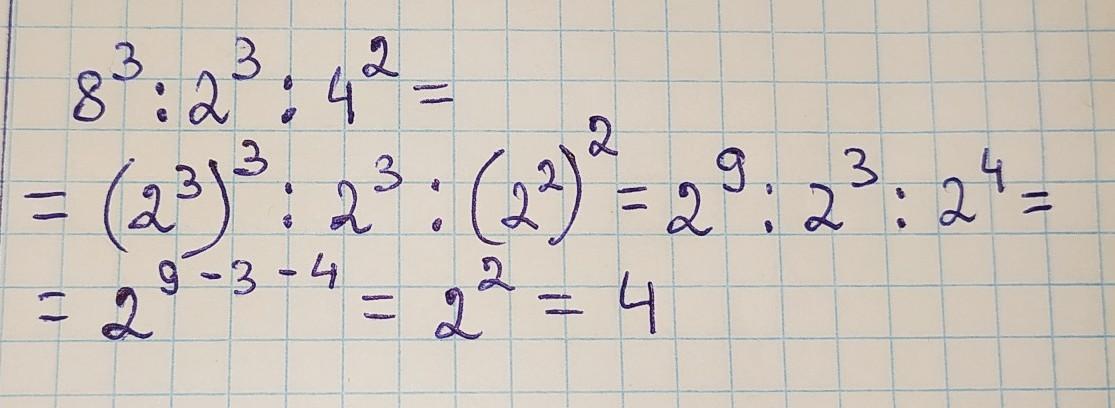 8³ : 2³ : 4² =
= (2³)³ : 2³ : (2²)² = 2⁹ : 2³ : 2⁴ =
= 2⁹⁻³⁻⁴ = 2² = 4